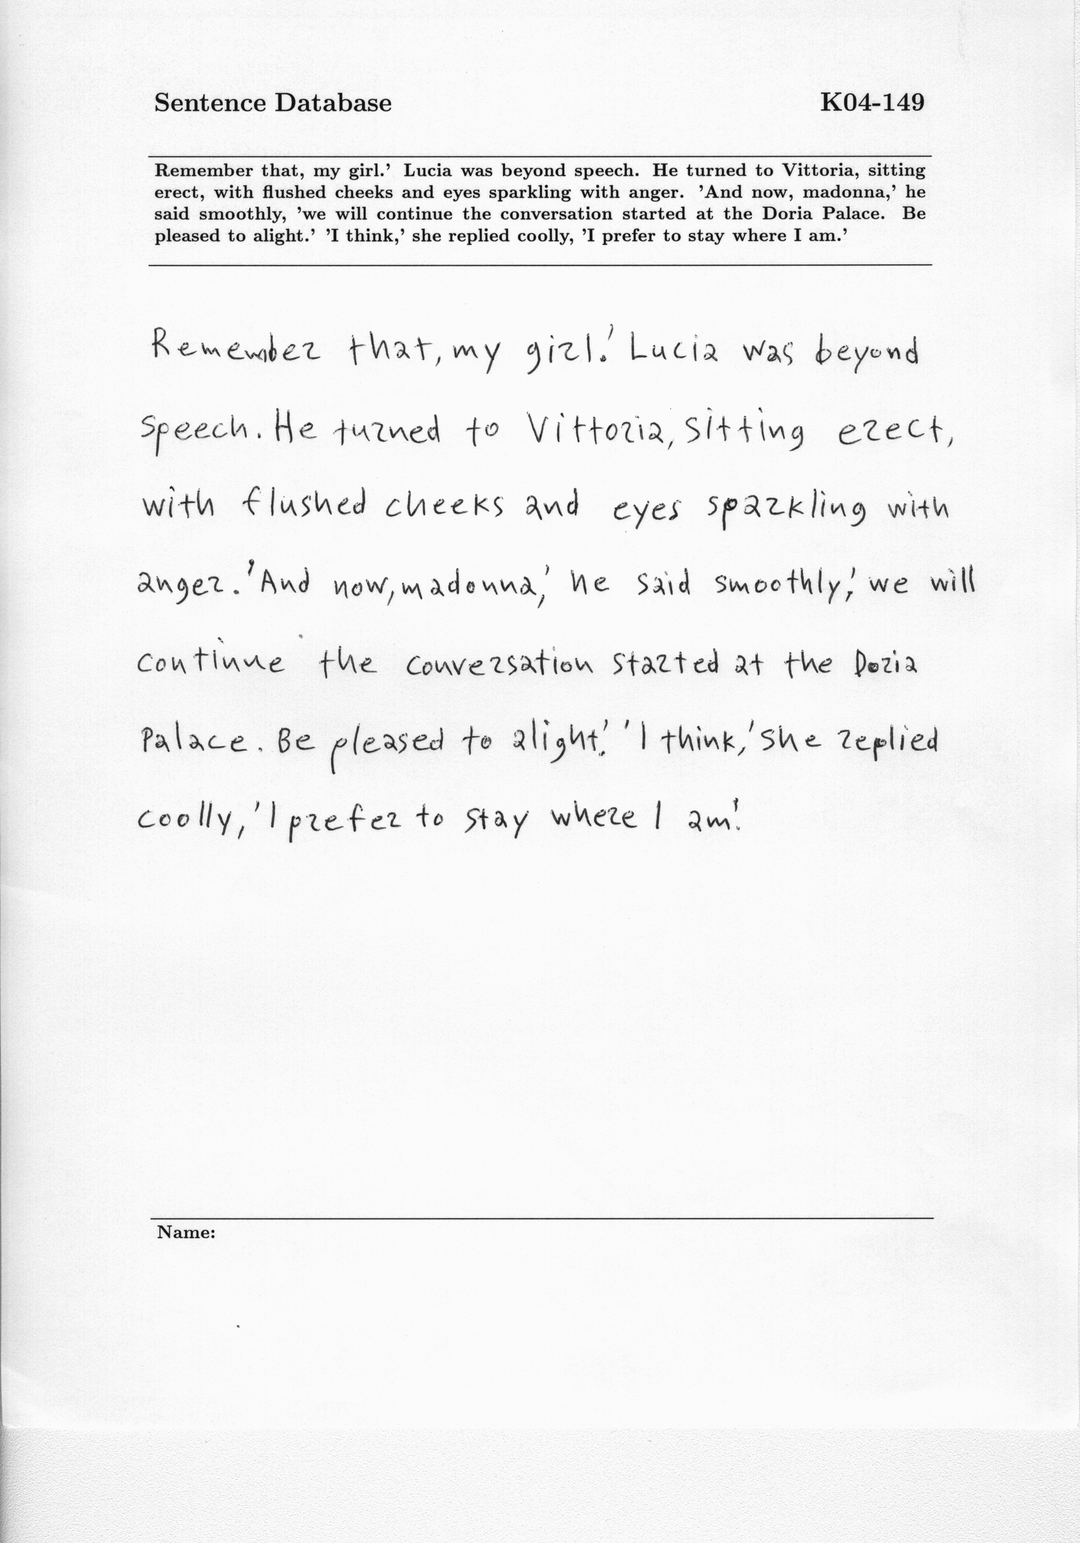 Sentence Database K04-149
Remember that, my girl.' Lucia was beyond speech. He turned to Vittoria, sitting
erect, with flushed cheeks and eyes sparkling with anger. 'And now, madonna,' he
said smoothly, 'we will continue the conversation started at the Doria Palace. Be
pleased to alight.' 'I think,' she replied coolly, 'I prefer to stay where I am.'
Remember that, my girl.' Lucia was beyond
speech. He turned to Vittoria, sitting erect,
with flushed cheeks and eyes sparkling with
anger. 'And now, madonna,' he said smoothly,' we will
continue the conversation started at the Doria
Palace. Be pleased to alight.' 'I think,' she replied
coolly, 'I prefer to stay where I am.'
Name: